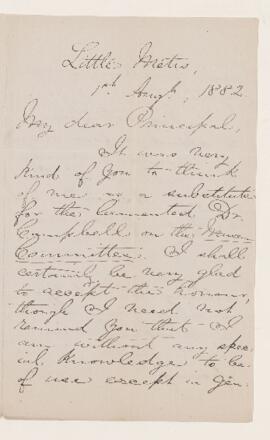 Little Metis,
1st Augt, 1882.
My dear Principal,
It was very
kind of you to think
of me as a substitute
for the lamented Dr.
Campbell on the
Committee. I shall
certainly be very glad
to accept the honour,
though I need not
remind you that I
am without any spec-
ial knowledge to be
of use except in gen-